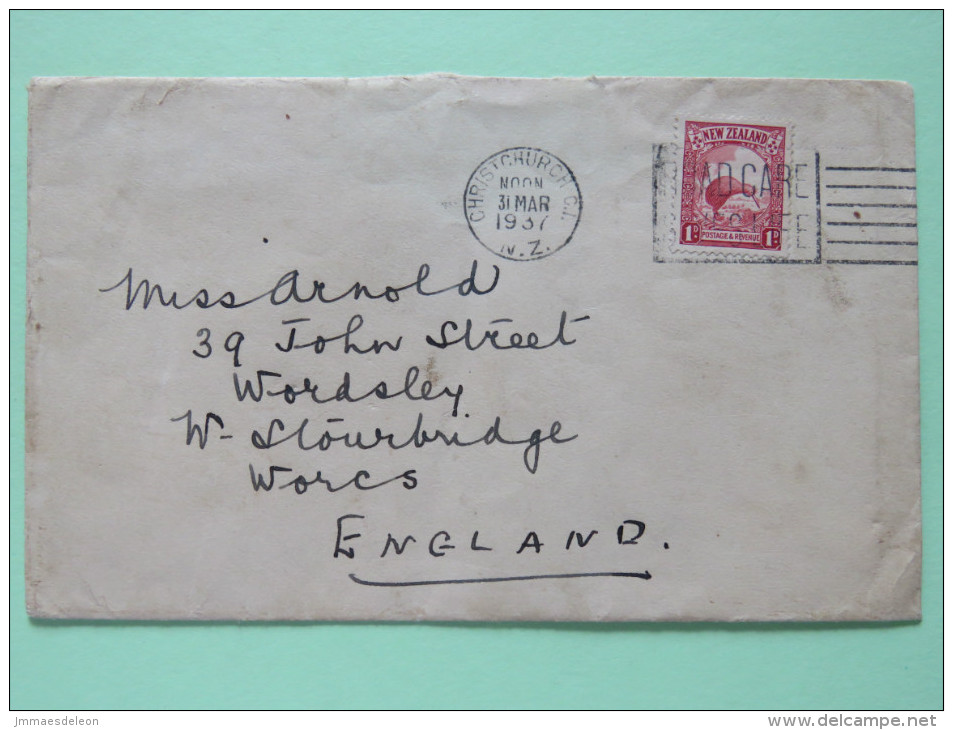 CHRISTCHURCH C.1.
NOON
31 MAR
1937
N.Z.
NEW ZEALAND
AD CARE
POSTAGE & REVENUE
1D 1D
Miss Arnold
39 John Street
Wordsley
W- Stourbridge
Worcs
ENGLAND.
jmmaesdeleon
www.delcampe.net